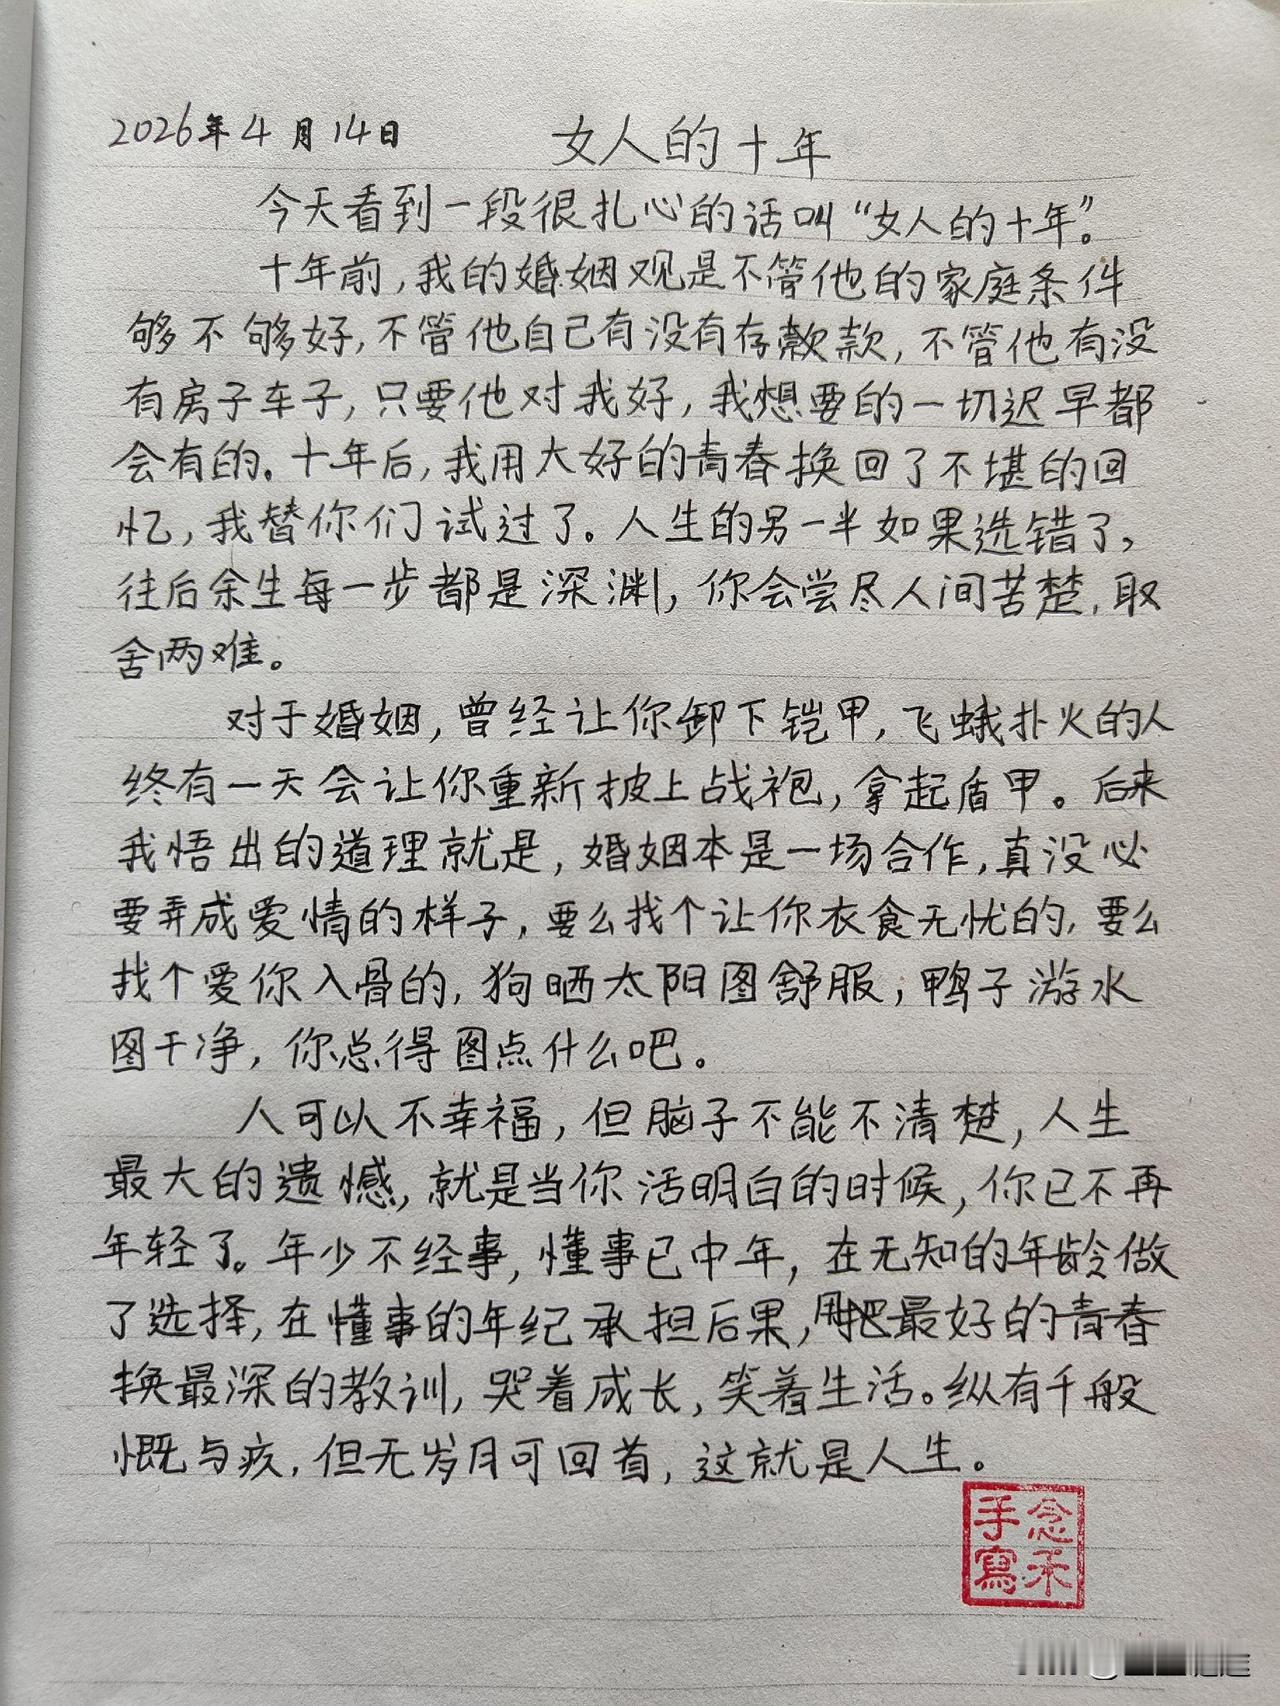 2026年4月14日 女人的十年
今天看到一段很扎心的话叫“女人的十年”。
十年前,我的婚姻观是不管他的家庭条件
够不够好,不管他自己有没有存款款,不管他有没
有房子车子,只要他对我好,我想要的一切迟早都
会有的。十年后,我用大好的青春换回了不堪的回
忆,我替你们试过了。人生的另一半如果选错了,
往后余生每一步都是深渊,你会尝尽人间苦楚,取
舍两难。
对于婚姻,曾经让你卸下铠甲,飞蛾扑火的人
终有一天会让你重新披上战袍,拿起盾甲。后来
我悟出的道理就是,婚姻本是一场合作,真没必
要弄成爱情的样子,要么找个让你衣食无忧的,要么
找个爱你入骨的,狗晒太阳图舒服,鸭子游水
图干净,你总得图点什么吧。
人可以不幸福,但脑子不能不清楚,人生
最大的遗憾,就是当你活明白的时候,你已不再
年轻了。年少不经事,懂事已中年,在无知的年龄做
了选择,在懂事的年纪承担后果,用把最好的青春
换最深的教训,哭着成长,笑着生活。纵有千般
慨与疚,但无岁月可回首,这就是人生。
念禾
手寫